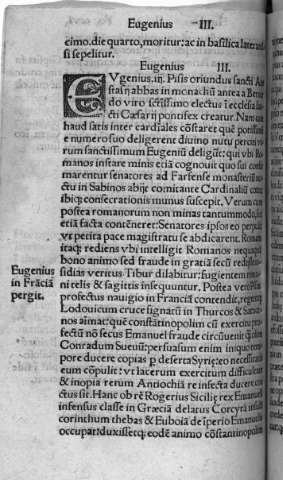 Eugenius III.
cimo. die quarto, moritur: ac in basilica laterane͂
si sepelitur.
Eugenius III.
EVgenius. iij. Pisis oriundus sancti
stasij abbas in monachū antea a
do viro electus i ecclesia
cti Cæsarij pontifex creatur. Nam
haud satis inter cardiales cōstaret que potissi
e numero suo deligerent diuino nutu perciti vi
rum sanctissimum Eugeniū deligūt: qui vbi Ro
manos instare minis etiā cognouit quo sui
marentur senatores ad Farfense monasteriū
ctu in Sabinos abijt comitante Cardinaliū
ibiq; consecrationis munus suscepit. Verum cum
postea romanorum non minas tantummodo,
etiā facta contēneret: Senatores ipsos eo perpulit
vt petita pace magistratu se abdicarent. Roman
itaq; rediens vbi intelligit Romanos nequaq̄
bono animo sed fraude in gratiā secū redijsse
Eugenius
in Frāciā
pergit.
sidias veritus Tibur dilabitur: fugientem
ni telis & sagittis insequuntur. Postea vero Pisas
profectus nauigio in Franciā contendit, regem
Lodouicum cruce signatū in Thurcos & Sarace
nos aīmat: que cōstātinopolim cū exercitu pro
fectū nō secus Emanuel fraude circūuenit
Conradum Sueuū: persuasum enim
pore ducere copias p deserta Syrię: eo necessitatis
eum cōpulit: vt lacerum exercitum difficultate
& inopia rerum Antiochiā re infecta ducere
ctus sit. Hanc ob rē Rogerius Sicilię rex Emanueli
infensus classe in Græciā delatus Corcyrā
corinthum thebas & Euboiā de īperio Emanuelis
occupat: duxissetq; eodē animo cōstantinopolim